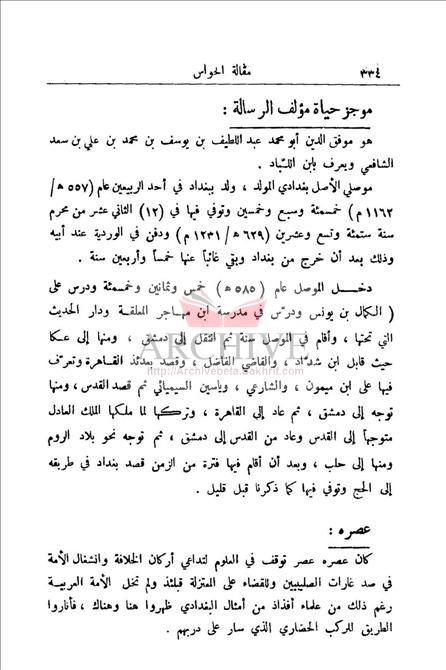 ٣٣٤ مقالة الحواس
موجز حياة مؤلف الرسالة :
هو موفق الدين أبو محمد عبد اللطيف بن يوسف بن محمد بن علي بن سعد
الشافعي ويعرف بابن اللبّاد .
موصلي الأصل بغدادي المولد ، ولد ببغداد في أحد الربيعين عام (٥٥٧ ه /
١١٦٢ م) خمسمئة وسبع وخمسين وتوفي فيها في (١٢) الثاني عشر من محرم
سنة ستمئة وتسع وعشرين (٦٢٩ ه/ ١٢٣١ م) ودفن في الوردية عند أبيه
وذلك بعد أن خرج من بغداد وبقي غائباً عنها خمساً وأربعين سنة .
دخل الموصل عام (٥٨٥ ه) خمس وثمانين وخمسمئة ودرس على
( الكمال بن يونس ودرّس في مدرسة ابن مهاجر المعلقة ودار الحديث
التي تحتها ، وأقام في الموصل سنة ثم انتقل إلى دمشق ، ومنها إلى عكا
حيث قابل ابن شدّاد ، والقاضي الفاضل ، وقصد بعدئذ القاهرة وتعرّف
فيها على ابن ميمون ، والشارعي ، وياسين السيميائي ثم قصد القدس ، ومنها
توجه إلى دمشق ، ثم عاد إلي القاهرة ، وتركها لما ملكها الملك العادل
متوجهاً إلى القدس وعاد من القدس إلى دمشق ، ثم توجه نحو بلاد الروم
ومنها إلى حلب ، وبعد أن أقام فيها فترة من الزمن قصد بغداد في طريقه
إلى الحج وتوفي فيها كما ذكرنا قبل قليل .
عصره :
كان عصره عصر توقف في العلوم لتداعي أركان الخلافة وانشغال الأمة
في صد غارات الصليبيين وللقضاء على المعتزلة قبلئذ ولم تخل الأمة العربية
رغم ذلك من علماء أفذاذ من أمثال البغدادي ظهروا هنا وهناك ، فأناروا
الطريق للركب الحضاري الذي سار على دربهم .
ARCHIVE
http://Archivebeta.Sakhrit.com